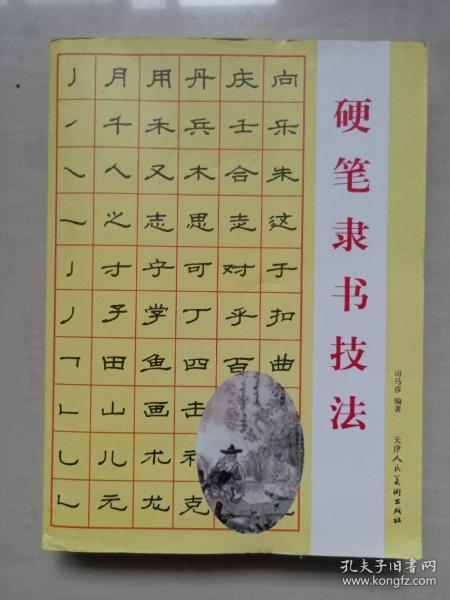 丿月用丹庆向
㇒千禾兵壬乐
㇏人又木合朱
㇏之志思走这
亅才守可对于
丿子学丁乎扣
𠃍田鱼四百曲
㇗山画击
乚儿术
乚元龙克
硬笔隶书技法
司马彦 编著
天津人民美術出版社
孔夫子旧书网
www.kongfz.com